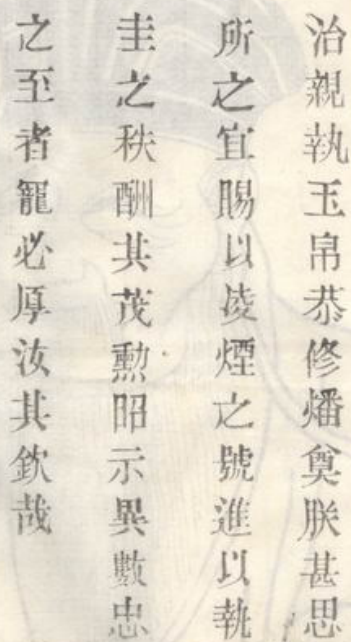 治親執玉帛恭修燔奠朕甚思
所之宜賜以凌煙之號進以執
圭之秩酬其茂勲昭示異數忠
之至者寵必厚汝其欽哉